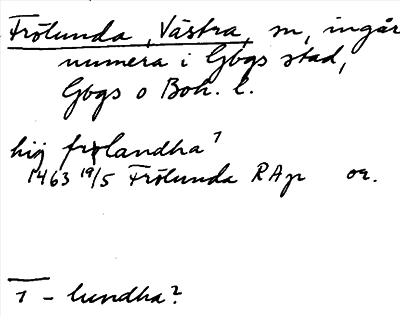 Frölunda, Västra, sn, ingår
numera i Gbgs stad,
Gbgs o Boh. l.
hij frølandha 1
1463 19/5 Frölunda RAp or.
1 - lundha?